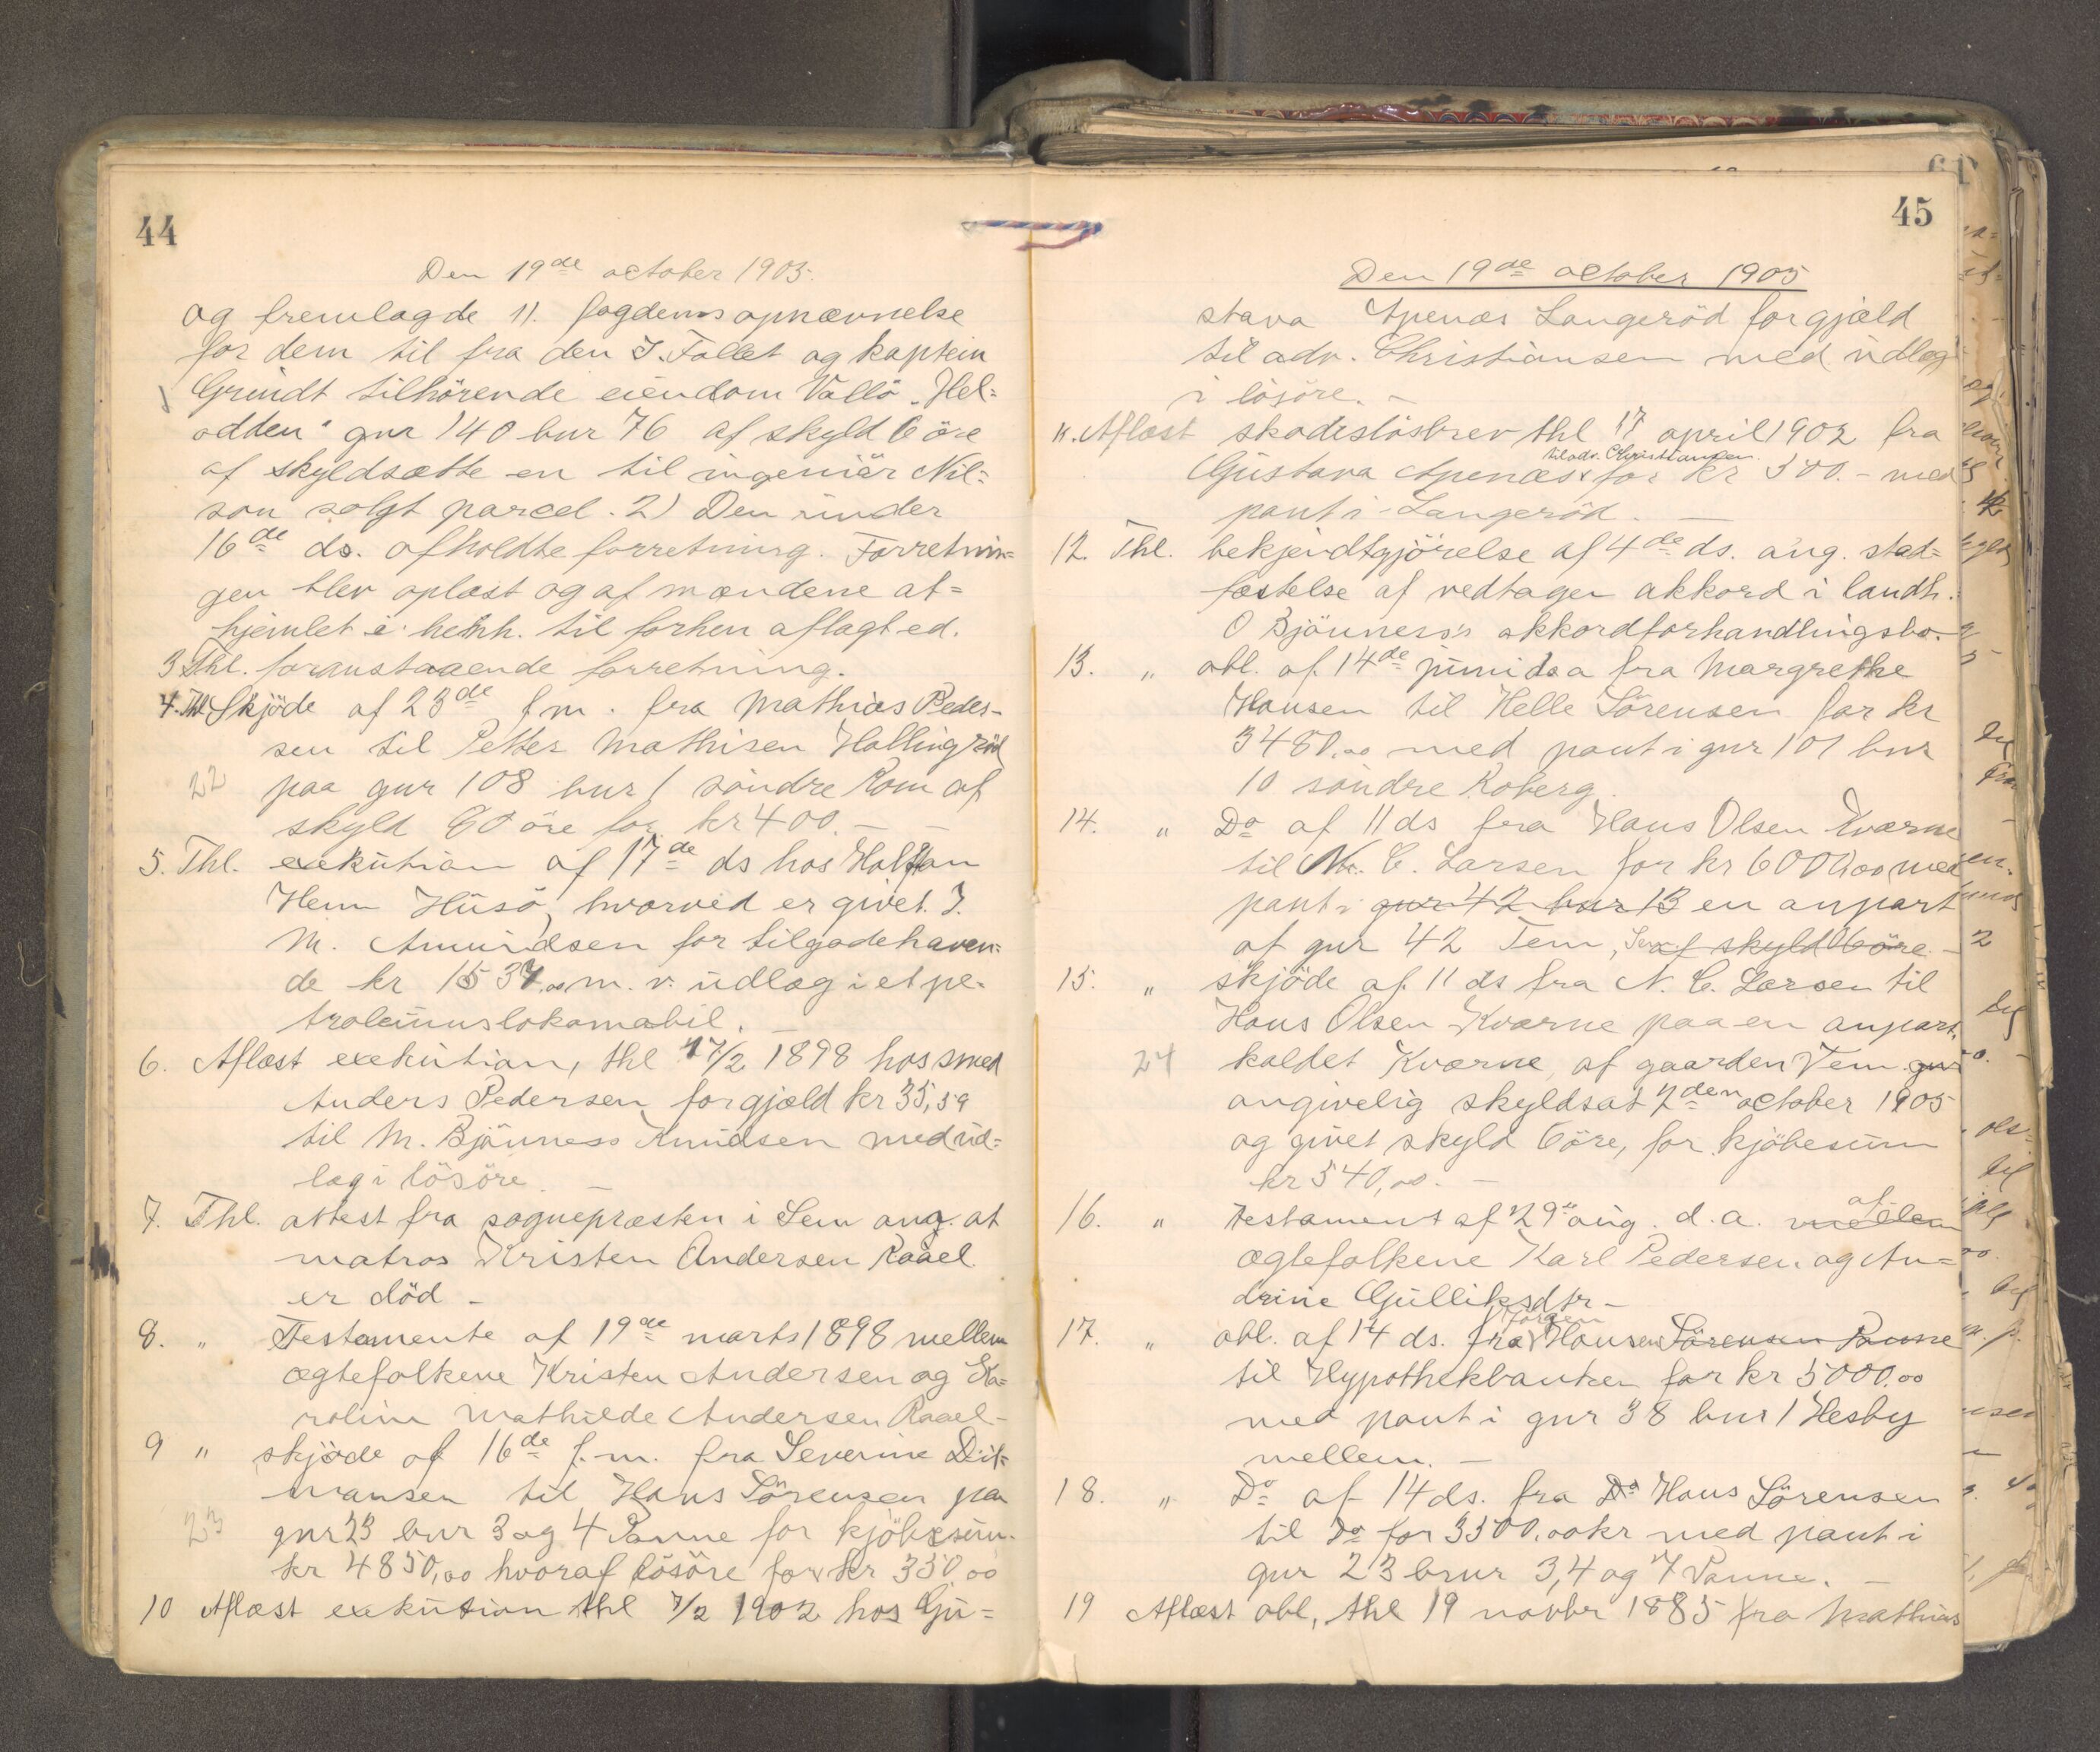 44
Den 19de october 1905.
og fremlagde 1). fogdens opnævnelse
for dem til fra den J. Follet og kaptein
Grundt tilhörende eiendom Vallö "Hel=
odden" gnr 140 bnr 76 af skyld 6 öre
af skyldsætte en til ingeniör Nil=
son solgt parcel. 2) Den under
16de ds. afholdte forretning. Forretnin=
gen blev oplæst og af mændene af=
hjemlet i henh. til forhen aflagt ed.
3 Thl. foranstaaende forretning.
4. Thl Skjöde af 23de f.m. fra Mathias Peder-
sen til Petter Mathisen Hallingröd
22 paa gnr 108 bnr 1 söndre Rom af
skyld 90 öre for kr 400.-
5. Thl. exekution af 17de ds hos Halfdan
Hem Husö, hvorved er givet J.
M. Amundsen for tilgodehaven=
de kr 1537.00 m. v. udlæg i et pe-
troleumslokomobil. -
6. Aflæst exekution, thl 17/2 1898 hos smed
Anders Pedersen for gjæld kr 35,59
til M. Bjönness Knudsen med ud=
læg i lösöre. -
7. Thl. attest fra sognepræsten i Sem ang. at
matros Kristen Andersen Raael
er död -
8. " Testamente af 19de marts 1898 mellem
ægtefolkene Kristen Andersen og Ka=
roline Mathilde Andersen Raael-
9 " skjöde af 16de f.m. fra Severine Dit=
mansen til Hans Sörensen paa
23 gnr 23 bnr 3 og 4 Panne for kjöbesum.
kr 4850,00 hvoraf lösöre for kr 350 00
10 Aflæst exekution thl 7/2 1902 hos Gu=
45
Den 19de october 1905
stava Apenæs Langeröd for gjæld
til adv. Christiansen med udlæg
i lösöre. -
11. Aflæst skadeslösbrev thl 17 april 1902 fra
til adv. Christiansen
Gustava Apenæs for kr 500.- med
pant i Langeröd. -
12. Thl. bekjendtgjörelse af 4de ds. ang. stad=
fæstelse af vedtagen akkord i landh.
O Bjönness's akkordforhandlingsbo.
13. " obl. af 14de juni ds a fra Margrethe
Hansen til Helle Sörensen for kr
3480.00 med pant i gnr 101 bnr
10 söndre Roberg.
14. " Do af 11 ds fra Hans Olsen Kværne
til N. C. Larsen for kr 600,00 med
pant i gnr 42 bnr 13 en anpart
af gnr 42 Tem, Sem af skyld 06 öre. -
15. " skjöde af 11 ds fra N. C. Larsen til
Hans Olsen Kværne paa en anpart,
24 kaldet Kværne, af gaarden Tem gnr
angivelig skyldsat 2den october 1905
og givet skyld 6 öre, for kjöbesum
kr 540,00. -
16. " testament af 29de aug. d.a. mellem af
ægtefolkene Karl Pedersen og An=
drine Gulliksdtr -
17. " obl. af 14 ds. fra Jörgen Hansen Sörensen Panne
til Hypothekbanken for kr 5000.00
med pant i gnr 38 bnr 1 Hesby
mellem. -
18. " Do af 14 ds. fra Do Hans Sörensen
til Do for 3500.00 kr med pant i
gnr 23 brnr 3,4 og 7 Panne. -
19 Aflæst obl, thl 19 novbr 1885 fra Mathias